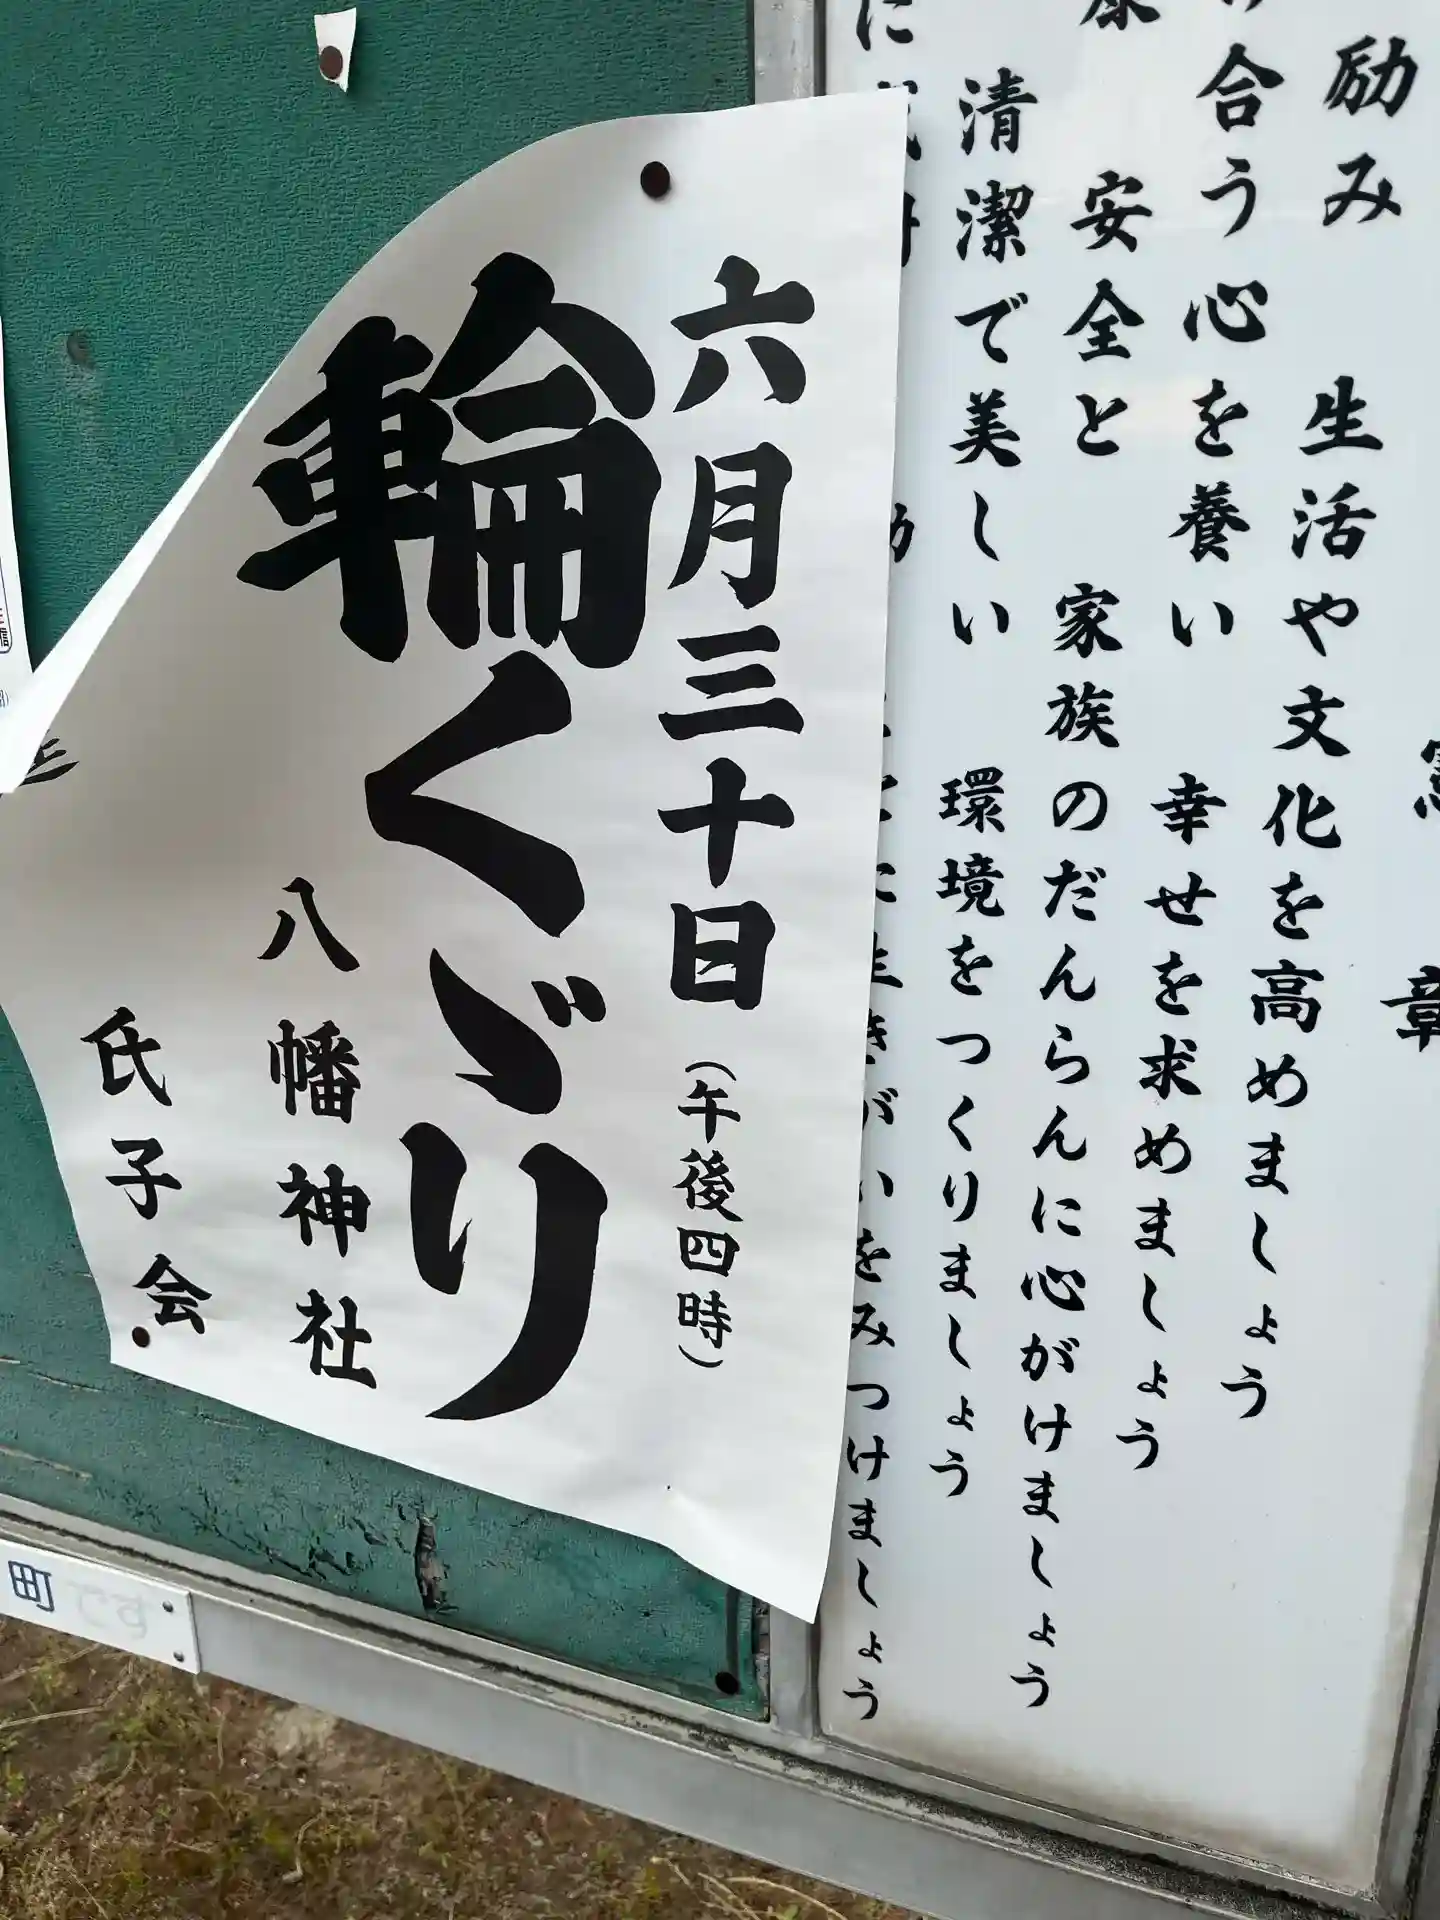 六月三十日(午後四時)
輪くゞり
八幡神社
氏子会
憲章
励み 生活や文化を高めましょう
合う心を養い 幸せを求めましょう
康 安全と 家族のだんらんに心がけましょう
清潔で美しい 環境をつくりましょう
に
生きがいをみつけましょう
町です